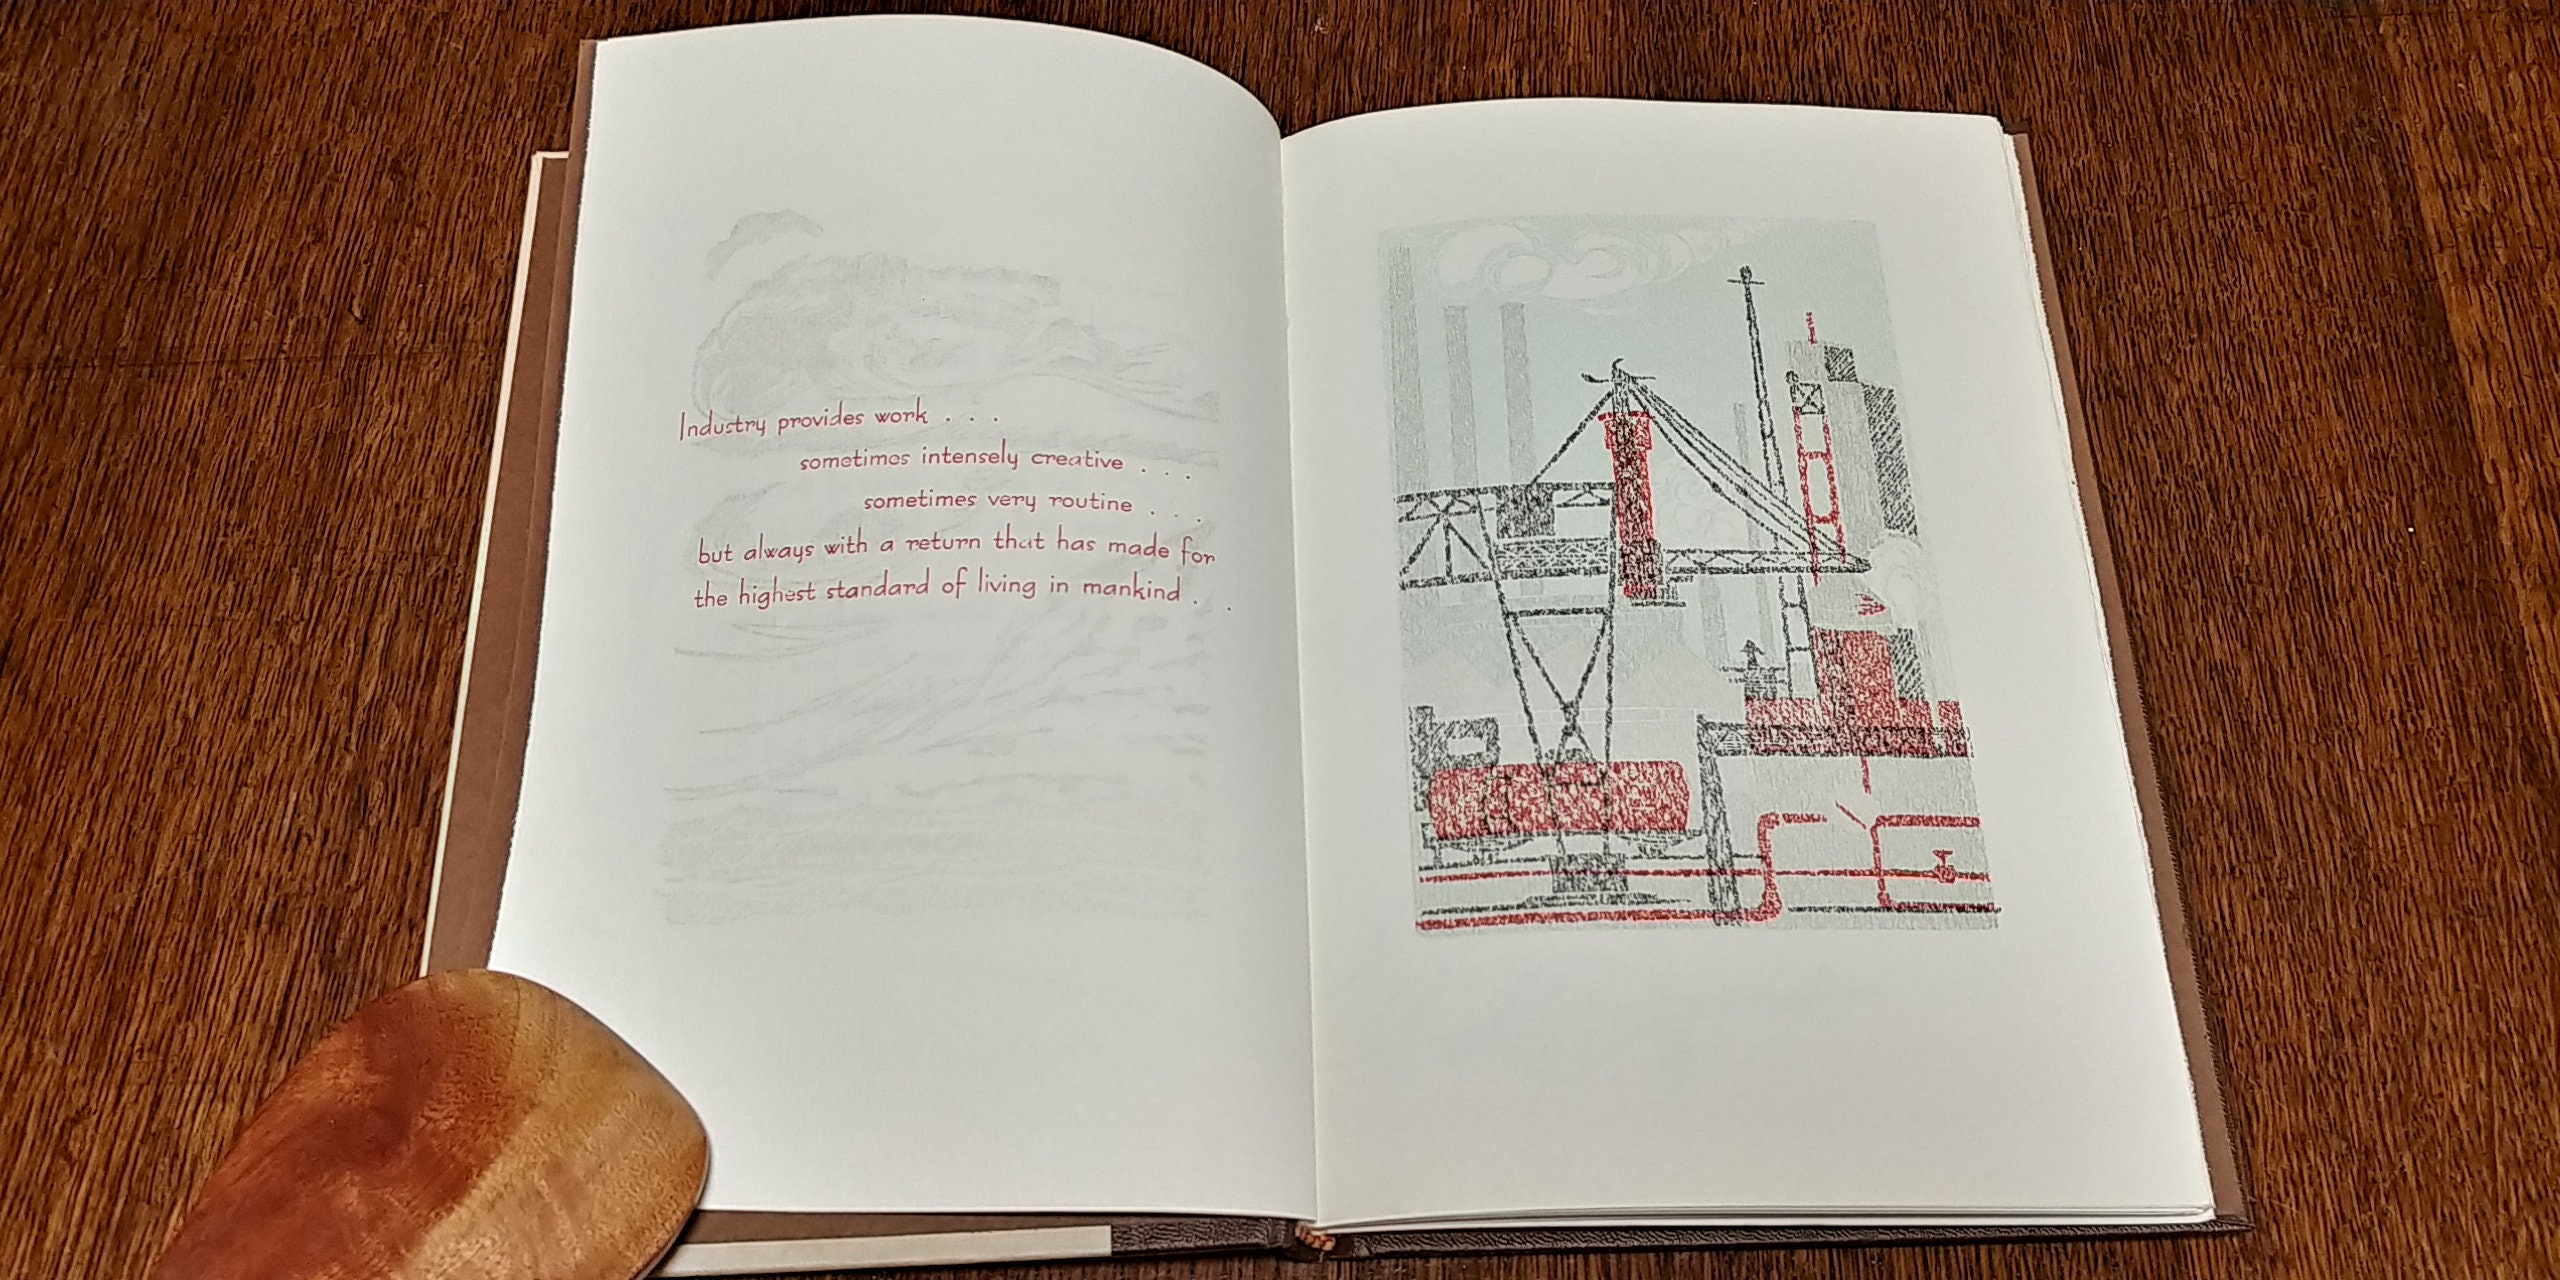 Industry provides work . . .
sometimes intensely creative . . .
sometimes very routine . . .
but always with a return that has made for
the highest standard of living in mankind . .